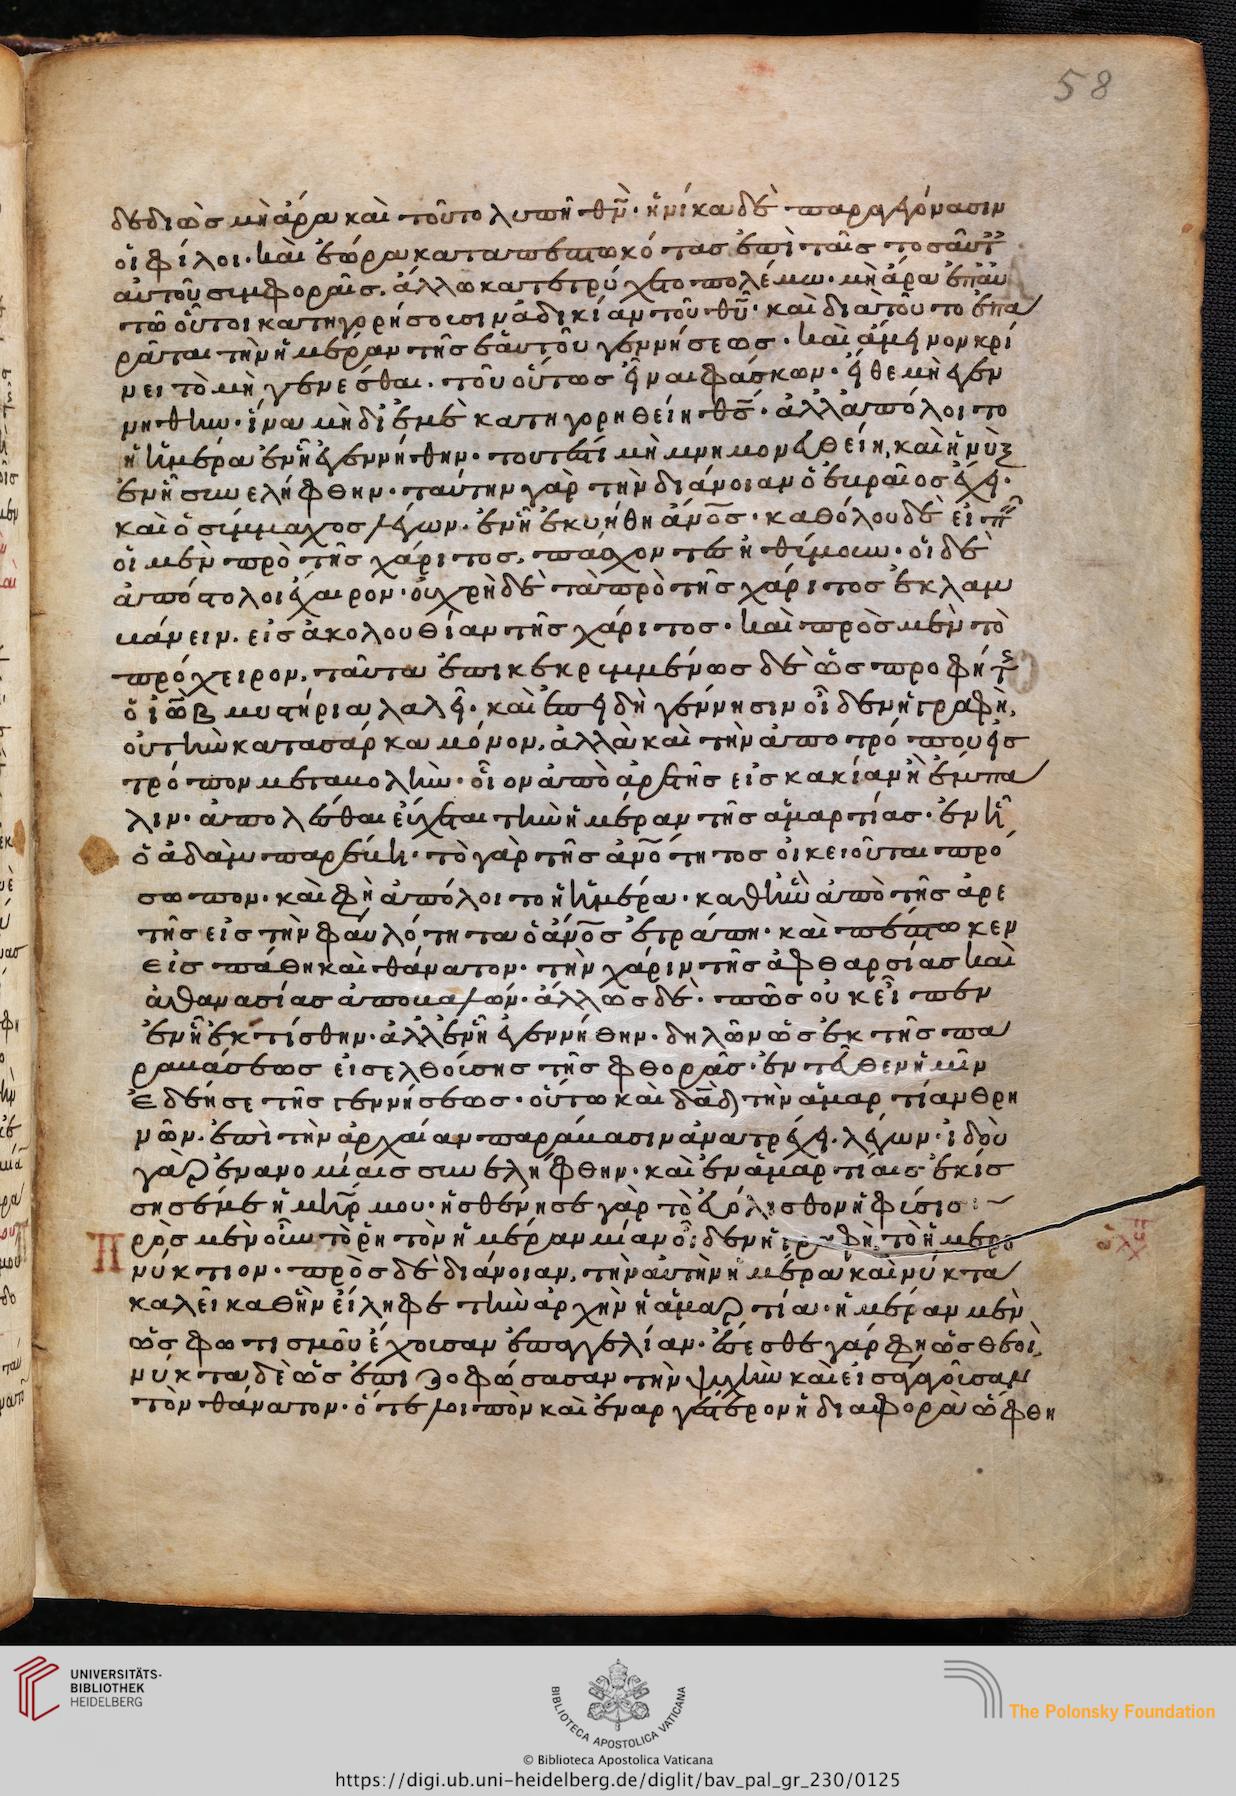 58
δεδιὼς μὴ ἄρα καὶ τοῦτο λυπῆ θν̄· ἡνίκα δὲ παραγεγόνασιν
οἱ φίλοι· καὶ ἑώρα καταπεπτωκότας ἐπὶ ταῖς τοσαύτ
αὐτοῦ συμφοραῖς, ἄλλω κατετρύχετο πολέμω· μὴ ἄρα ἐπ αυ
τῶ οὗτοι κατηγορήσουσιν ἀδικίαν τοῦ θῡ· καὶ διατοῦτο ἐπα
ρᾶται τὴν ἡμέραν τῆς ἑαυτοῦ γεννήσεως· καὶ ἄμεινον κρί
νει τὸ μὴ γενέσθαι· τοῦ οὕτως εἶναι φάσκων· εἴθε μὴ ἐγεν
νήθην· ἵνα μὴ δι ἐμὲ κατηγορηθείη θς̄· ἀλλ ἀπόλοιτο
ἡ ἡμέρα ἐν ἧ ἐγεννήθην· τουτέστι μὴ μνημονευθείη, καὶ ἡ νὺξ
ἐν ἧ συνελήφθην· ταύτην γὰρ τὴν διάνοιαν ὁ ἑβραῖος ἔχει·
καὶ ὁ σύμμαχος λέγων· ἐν ἧ ἐκυήθη ἄνος̄· καθόλου δὲ εἰπεῖν
οἱ μὲν πρὸ τῆς χάριτος, πάσχοντες ἠθύμουν· οἱ δὲ
ἀπόστολοι ἔχαιρον· οὐ χρὴ δὲ τὰ πρὸ τῆς χάριτος ἐκλαμ
βάνειν, εἰς ἀκολουθίαν τῆς χάριτος· καὶ πρὸς μὲν τὸ
πρόχειρον, ταῦτα ἐπικεκρυμμένως δὲ ὡς προφήτης
ὁ ἰὼβ μυστήρια λαλεῖ· καὶ ἐπειδὴ γέννησιν οἶδεν ἡ γραφὴ,
οὐ τὴν κατα σάρκα μόνον, ἀλλὰ καὶ τὴν ἀπο τρόπου εἰς
τρόπον μεταβολὴν· οἷον ἀπὸ ἀρετῆς εἰς κακίαν ἢ ἔμπα
λιν· ἀπολέσθαι εὔχεται τὴν ἡμέραν τῆς ἁμαρτίας· ἐν ἧ
ὁ ἀδὰμ παρέβη· τὸ γὰρ τῆς ἀνο̄τητος οἰκειοῦται πρό
σωπον· καὶ φὴ ἀπόλοιτο ἡ ἡμέρα· καθ ἣν ἀπὸ τῆς ἀρε
τῆς εἰς τὴν φαυλότητα ὁ ἄνος̄ ἐτράπη· καὶ πέπτωκεν
εἰς πάθη καὶ θάνατον· τὴν χάριν τῆς ἀφθαρσίας καὶ
ἀθανασίας ἀποβαλών· ἄλλως δὲ· πῶς οὐκ εἶπεν
ἐν ἧ ἐκτίσθην· ἀλλ ἐν ἧ ἐγεννήθην· δηλῶν ὡς ἐκ τῆς πα
ραβάσεως εἰσελθούσης τῆς φθορᾶς· ἐντεῦθεν ἡμῖν
ἐδέησε τῆς γεννήσεως· οὕτω καὶ δᾱδ τὴν ἁμαρτίαν θρη
νῶν· ἐπὶ τὴν ἀρχαίαν παράβασιν ἀνατρέχει, λέγων· ἰδοὺ
γὰρ ἐν ἀνομίαις συνελήφθην· καὶ ἐν ἁμαρτίαις ἐκίσ
σησέ με ἡ μη̄ρ μου· ἠσθένησε γὰρ τὸ εὐόλισθον ἡ φύσις:~
Πρὸς μὲν οὖν τὸ ῥητὸν ἡμέραν μίαν οἶδεν ἡ γραφὴ, τὸ ἡμερο
νύκτιον· πρὸς δὲ διάνοιαν, τὴν αὐτὴν ἡμέρα καὶ νύκτα
καλεῖ καθ ἣν εἴληφε τὴν ἀρχὴν ἡ ἁμαρτία· ἡμέραν μὲν
ὡς φωτισμοῦ ἔχουσαν ἐπαγγελίαν· ἔσεσθε γάρ φη ὡς θεοὶ,
νύκτα δὲ ὡς ἐπιζοφώσασαν τὴν ψυχὴν καὶ εἰσαγαγοῦσαν
τὸν θάνατον· ὅτε λοιπὸν καὶ ἐναργέστερον ἡ διαφορὰ ὤφθη
UNIVERSITÄTS-
BIBLIOTHEK
HEIDELBERG
BIBLIOTECA APOSTOLICA VATICANA
The Polonsky Foundation
© Biblioteca Apostolica Vaticana
https://digi.ub.uni-heidelberg.de/diglit/bav_pal_gr_230/0125